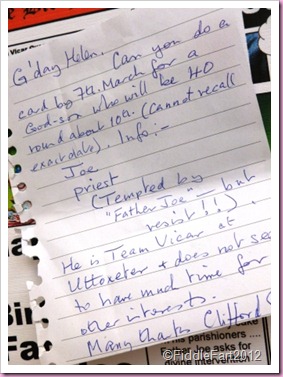 G'day Helen. Can you do a
card by 7th. March for a
God-son who will be 40
round about 10th. (Cannot recall
exact date). Info:-
Joe
priest
(Tempted by
"Father Joe" - but
resist!!).
He is Team Vicar at
Uttoxeter + does not see
to have much time for
other interests.
Many thanks Clifford
Vicar
Bin
Fa
This parishioners
Father Joe asks for
divine intervention
©FiddleFan2012